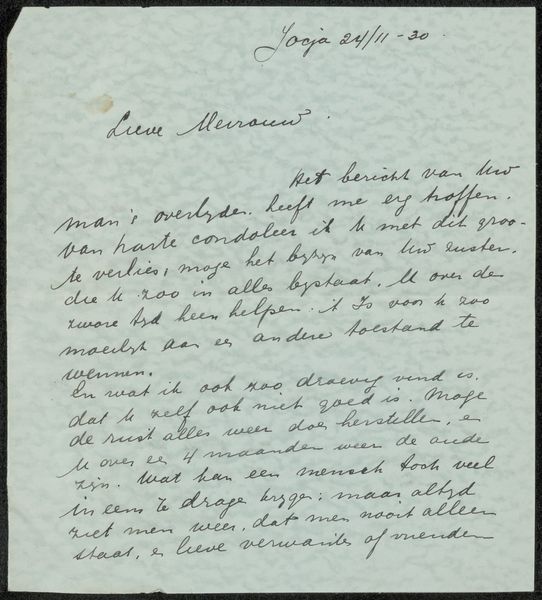 Jocja 24/11-30.
Lieve Mevrouw.
Het bericht van Uw
man's overlyden. heeft me erg troffen.
van harte condoleer ik U met dit groo-
te verlies; moge het byzyn van Uw zuster.
die U zoo in alles bystaat, U over de
zware tyd heen helpen. it Is voor U zoo
moeilyk aan een andere toestand te
wennen.
En wat ik ook zoo droevig vind is.
dat U zelf ook niet goed is. Moge
de rust alles weer doen herstellen, en
U over een 4 maanden weer de oude
zyn. Wat kan een mensch toch veel
in eens te drage krygen. maar altyd
ziet men weer. dat men nooit alleen
staat, en lieve verwanten of vrienden